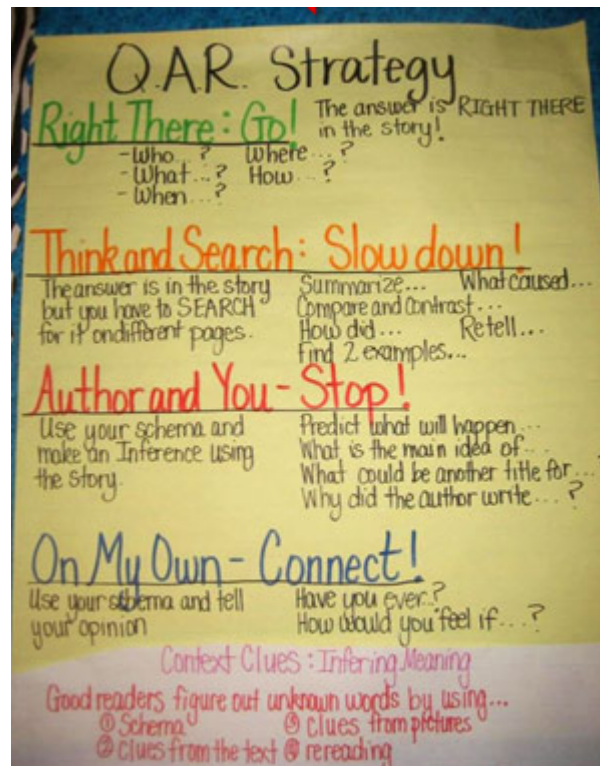 Q.A.R. Strategy
Right There: Go!
The answer is RIGHT THERE
in the story!
- Who...? Where...?
- What...? How...?
- When...?
Think and Search: Slow down!
The answer is in the story
but you have to SEARCH
for it on different pages.
Summarize... What caused...
Compare and Contrast...
How did... Retell...
Find 2 examples...
Author and You - Stop!
Use your schema and
make an Inference using
the story.
Predict what will happen...
What is the main idea of...
What could be another title for...
Why did the author write...?
On My Own - Connect!
Use your schema and tell
your opinion
Have you ever..?
How would you feel if...?
Context Clues: Infering Meaning
Good readers figure out unknown words by using...
① Schema ③ Clues from pictures
② Clues from the text ④ rereading